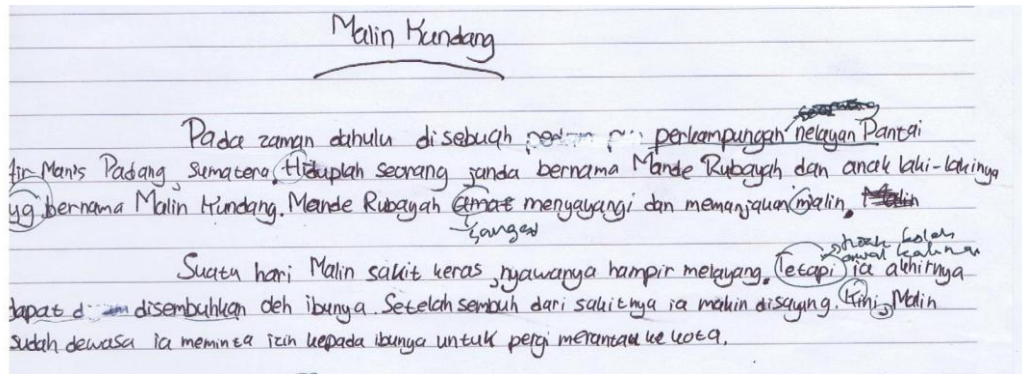 Malin Kundang
Pada zaman dahulu disebuah perkampungan nelayan Pantai
Air Manis Padang, Sumatera. Hiduplah seorang janda bernama Mande Rubayah dan anak laki-lakinya
yg bernama Malin Kundang. Mande Rubayah amat menyayangi dan memanjakan malin.
sangat
tidak boleh
awal kalimat
Suatu hari Malin sakit keras, nyawanya hampir melayang. Tetapi ia akhirnya
dapat disembuhkan oleh ibunya. Setelah sembuh dari sakitnya ia makin disayang. Kini, Malin
sudah dewasa ia meminta izin kepada ibunya untuk pergi merantau ke kota.